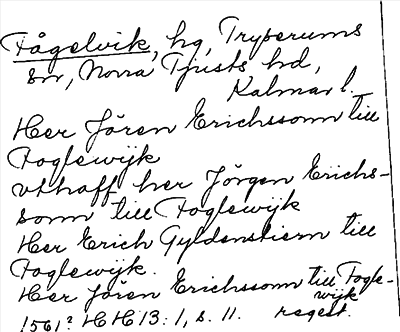 Fågelvik, hg, Tryserums
sn, Norra Tjusts hd,
Kalmar l.
Her Jören Erichssonn till
Foglewijk
vthaff her Jörgen Erichs-
sonn till Foglewijk
Her Erich Gyldenstiern till
Foglewijk.
Her Jören Erichssonn till Fogle-
wijk
1561? HH 13:1, s. 11. regest.